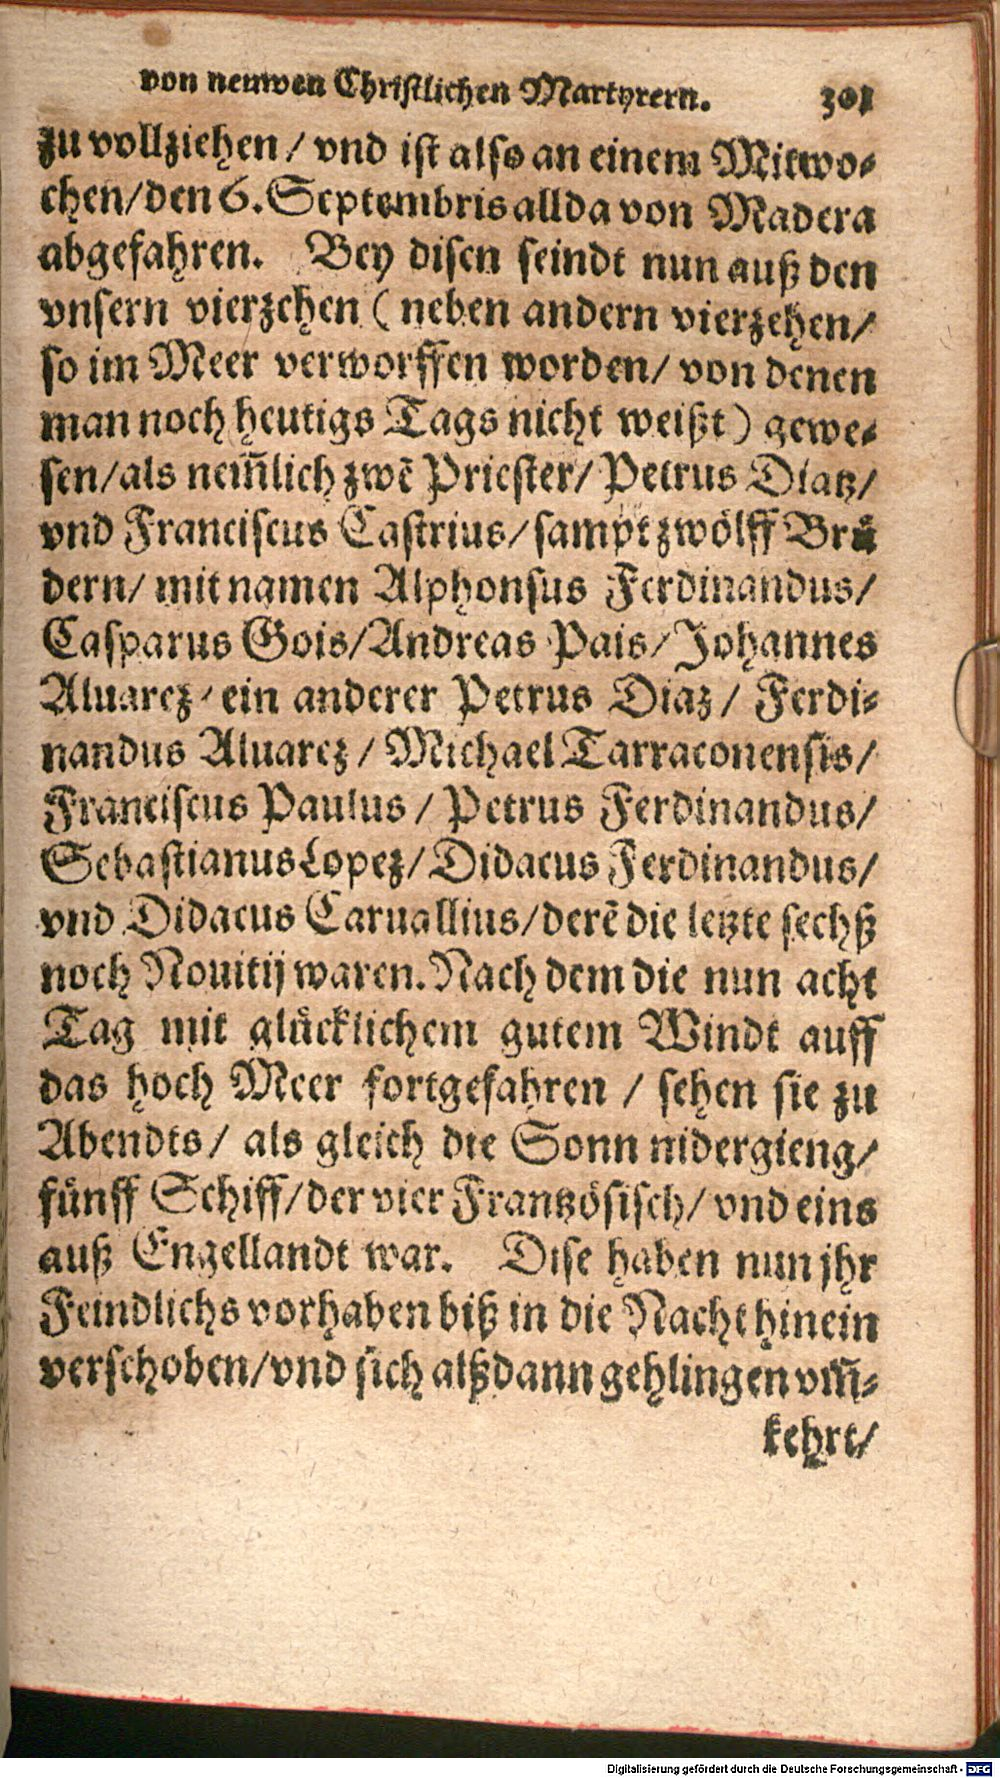 von neuwen Christlichen Martyrern. 301
zu vollziehen / vnd ist also an einem Mitwo-
chen/den 6. Septembris allda von Madera
abgefahren. Bey disen seindt nun auß den
vnsern vierzehen ( neben andern vierzehen/
so im Meer verworffen worden/ von denen
man noch heutigs Tags nicht weißt) gewe-
sen/als nem̃lich zwẽ Priester/ Petrus Diatz/
vnd Franciscus Castrius/ sampt zwölff Brü
dern/ mit namen Alphonsus Ferdinandus/
Casparus Gois/Andreas Pais/ Johannes
Aluarez/ ein anderer Petrus Diaz/ Ferdi-
nandus Aluarez/ Michael Tarraconensis/
Franciscus Paulus/ Petrus Ferdinandus/
Sebastianus Lopez/ Didacus Ferdinandus/
vnd Didacus Caruallius/derẽ die letzte sechß
noch Nouitij waren. Nach dem die nun acht
Tag mit glücklichem gutem Windt auff
das hoch Meer fortgefahren / sehen sie zu
Abendts/ als gleich die Sonn nidergieng/
fünff Schiff/der vier Frantzösisch/ vnd eins
auß Engellandt war. Dise haben nun jhr
Feindlichs vorhaben biß in die Nacht hinein
verschoben/vnd sich alßdann gehlingen vm̃-
kehrt/
Digitalisierung gefördert durch die Deutsche Forschungsgemeinschaft - DFG